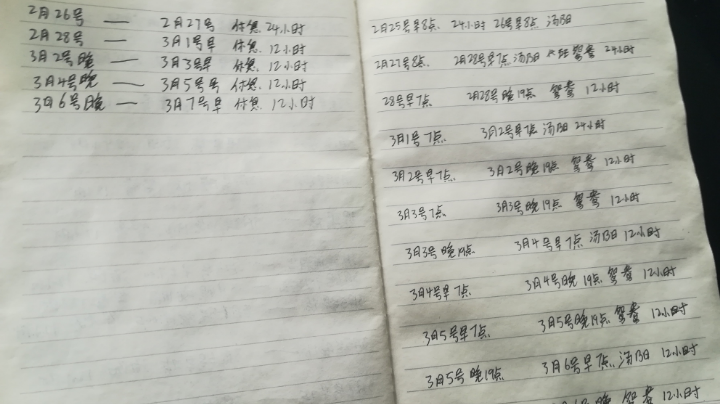 2月26号 — 2月27号 付总 24小时
2月28号 — 3月1号早 付总 12小时
3月2号晚 — 3月3号早 付总 12小时
3月4号晚 — 3月5号号 付总 12小时
3月6号晚 — 3月7号早 付总 12小时
2月25号早8点 24小时 26号早8点 汤阳
2月27号8点 2月28号早7点 汤阳 鸳鸯 24小时
28号早7点 2月28号晚19点 鸳鸯 12小时
3月1号7点 3月2号早7点 汤阳 24小时
3月2号早7点 3月2号晚19点 鸳鸯 12小时
3月3号7点 3月3号晚19点 鸳鸯 12小时
3月3号晚19点 3月4号早7点 汤阳 12小时
3月4号早7点 3月4号晚19点 鸳鸯 12小时
3月5号早7点 3月5号晚19点 鸳鸯 12小时
3月5号晚19点 3月6号早7点 汤阳 12小时
鸳鸯 12小时